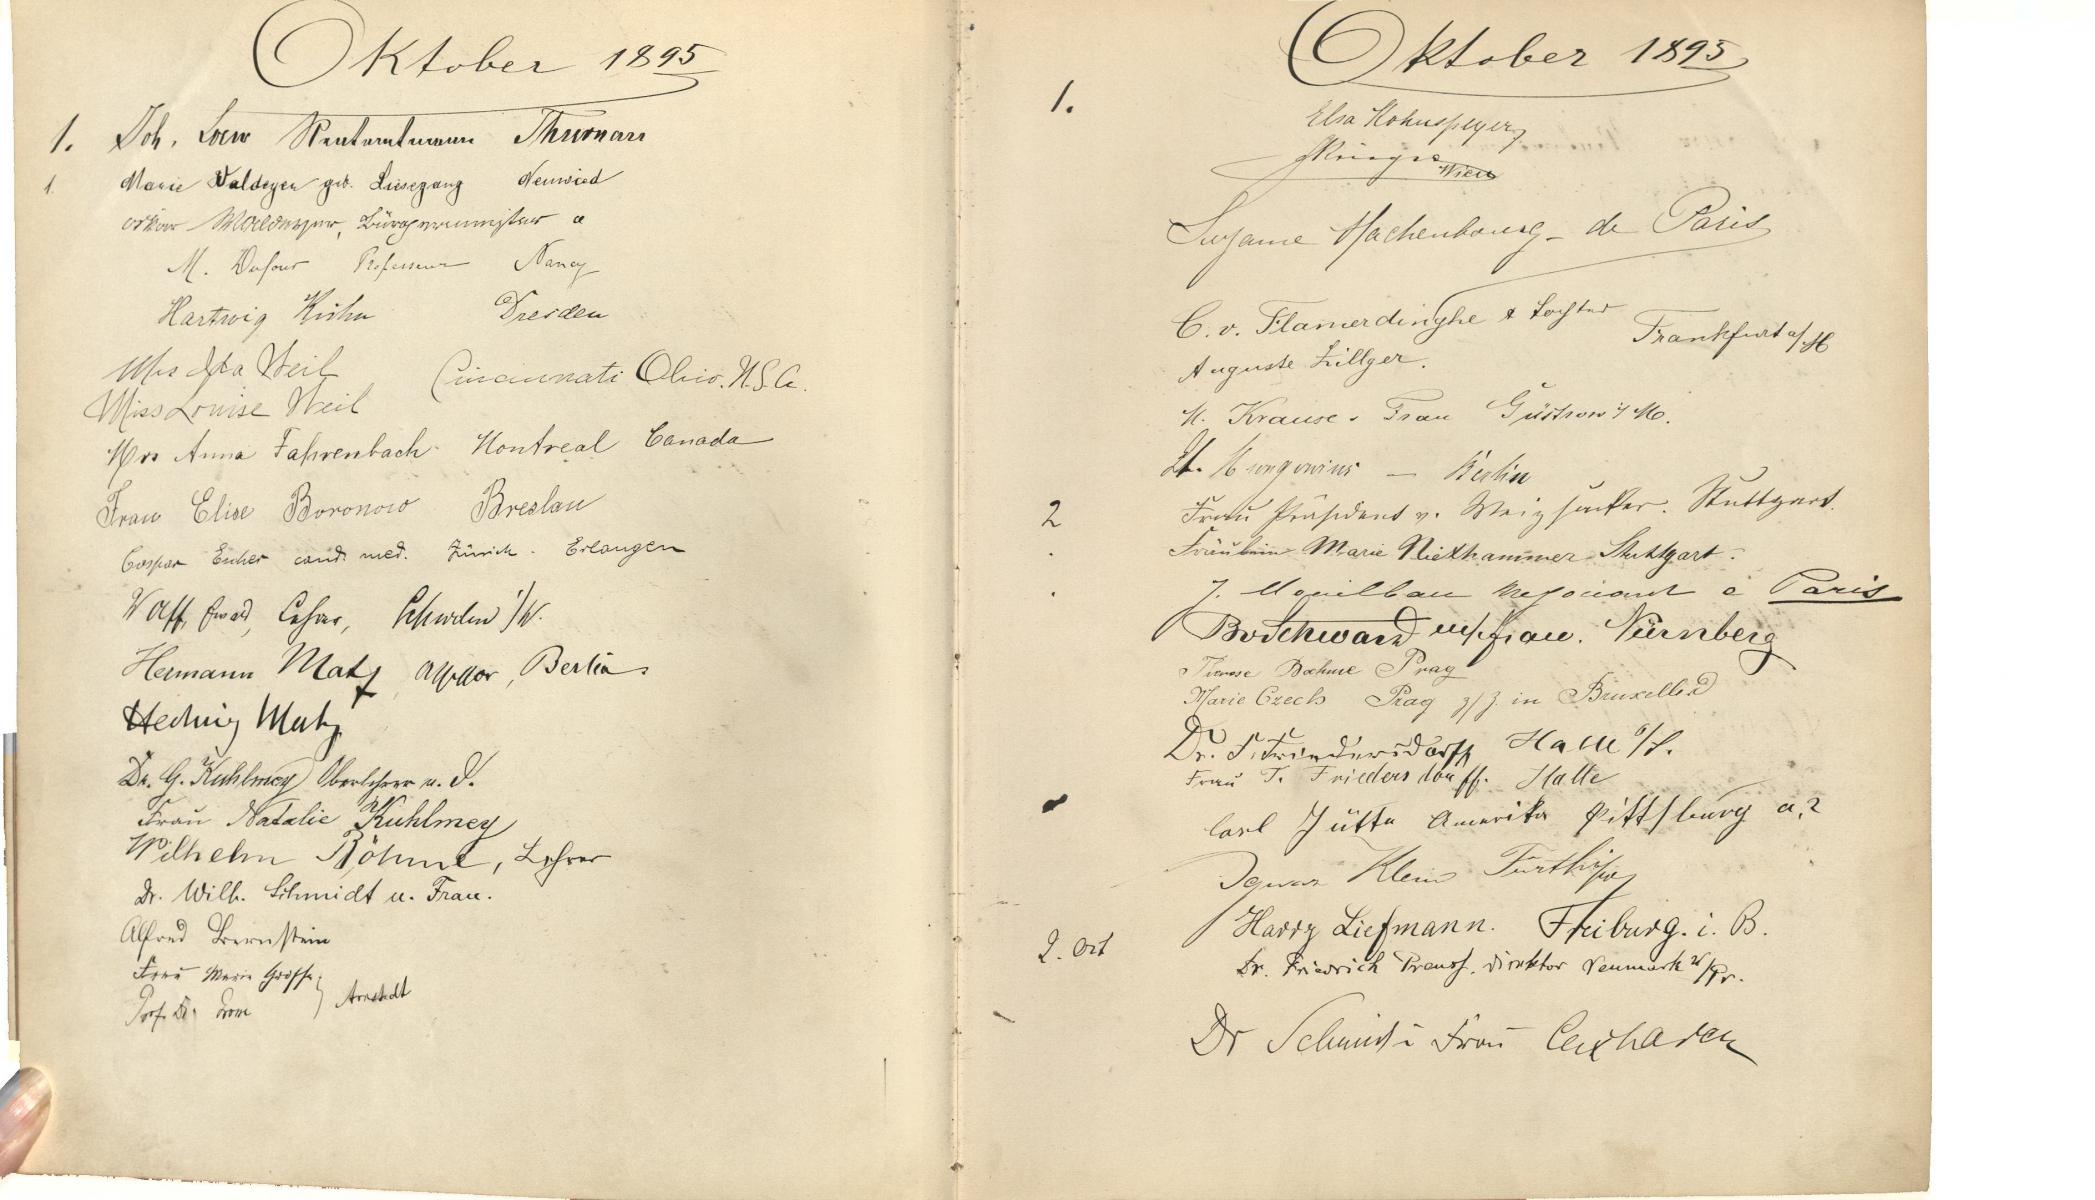 Oktober 1895
1. Joh. Loew Rentamtmann Thurnau
1. Marie Waldeyer geb. Liesegang Neuwied
Oskar Waldeyer, Bürgermeister a
M. Dufour Professeur Nancy
Hartwig Kühn Dresden
Mrs Ida Weil Cincinnati Ohio. U.S.A.
Miss Louise Weil
Mrs Anna Fahrenbach Montreal Canada
Frau Elise Boronow Breslau
Caspar Escher cand. med. Zürich - Erlangen
Ewald,
Hermann Matz Assessor, Berlin
Hedwig Matz
Dr. G. Kuhlmey Oberlehrer a. D.
Frau Natalie Kuhlmey
Wilhelm Böhme, Lehrer
Dr. Wilh. Schmidt u. Frau.
Alfred Bernstein
Frau Marie Grosse
Prof. Dr. Arnstadt
Oktober 1895
1.
Elsa Kohnspeyer
Wien
Suzanne Hachenbourg - de Paris
C. v. Flamerdinghe & Tochter Frankfurt a/M
Auguste Zillger.
H. Krause u Frau Güstrow i/M.
Dr. Mrongovius — Berlin
2 Frau Präsident v. Weizsäcker. Stuttgart.
Fräulein Marie Niethammer Stuttgart.
J. négociant à Paris
Bosckward m/Frau. Nürnberg
Therese Boehme Prag
Marie Czech Prag z/Z in Bruxelles
Dr. F. Friedersdorff Halle a/S.
Frau T. Friedersdorff. Halle
Carl Jütte Amerika Pittsburg a.?
Ignaz Klein
Harry Liefmann. Freiburg. i. B.
2. Oct Dr. Friedrich Preuss, Direktor Neumark W/Pr.
Dr Schmidt u Frau Cuxhaven